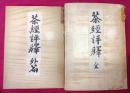 茶經評釋 外篇
茶經評釋 全